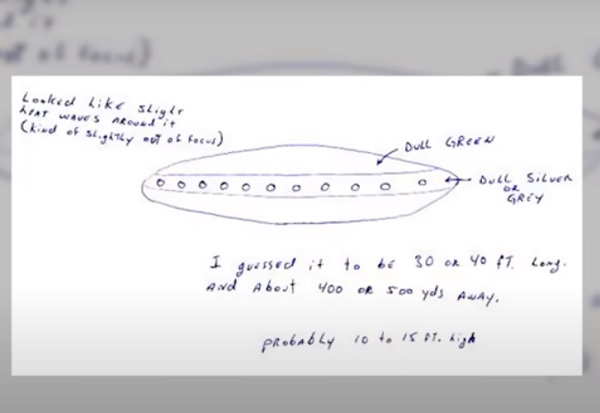 Looked Like Slight
HEAT WAVES AROUND it
(kind of slightly out of focus)
Dull GREEN
Dull SILVER
OR
GREY
I guessed it to be 30 or 40 FT. Long.
AND About 400 OR 500 yds AWAY.
probably 10 to 15 FT. high